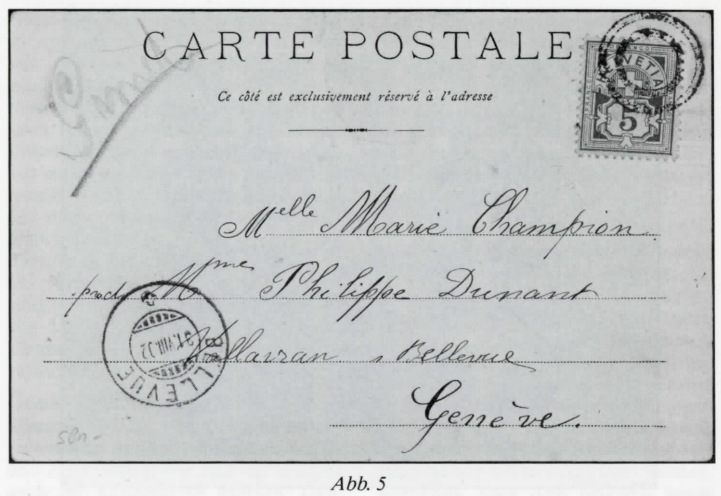 CARTE POSTALE
Ce côté est exclusivement réservé à l'adresse
HELVETIA
5
Melle Marie Champion
Mme Philippe Dunant
Bellevue
Genève.
BELLEVUE
Abb. 5